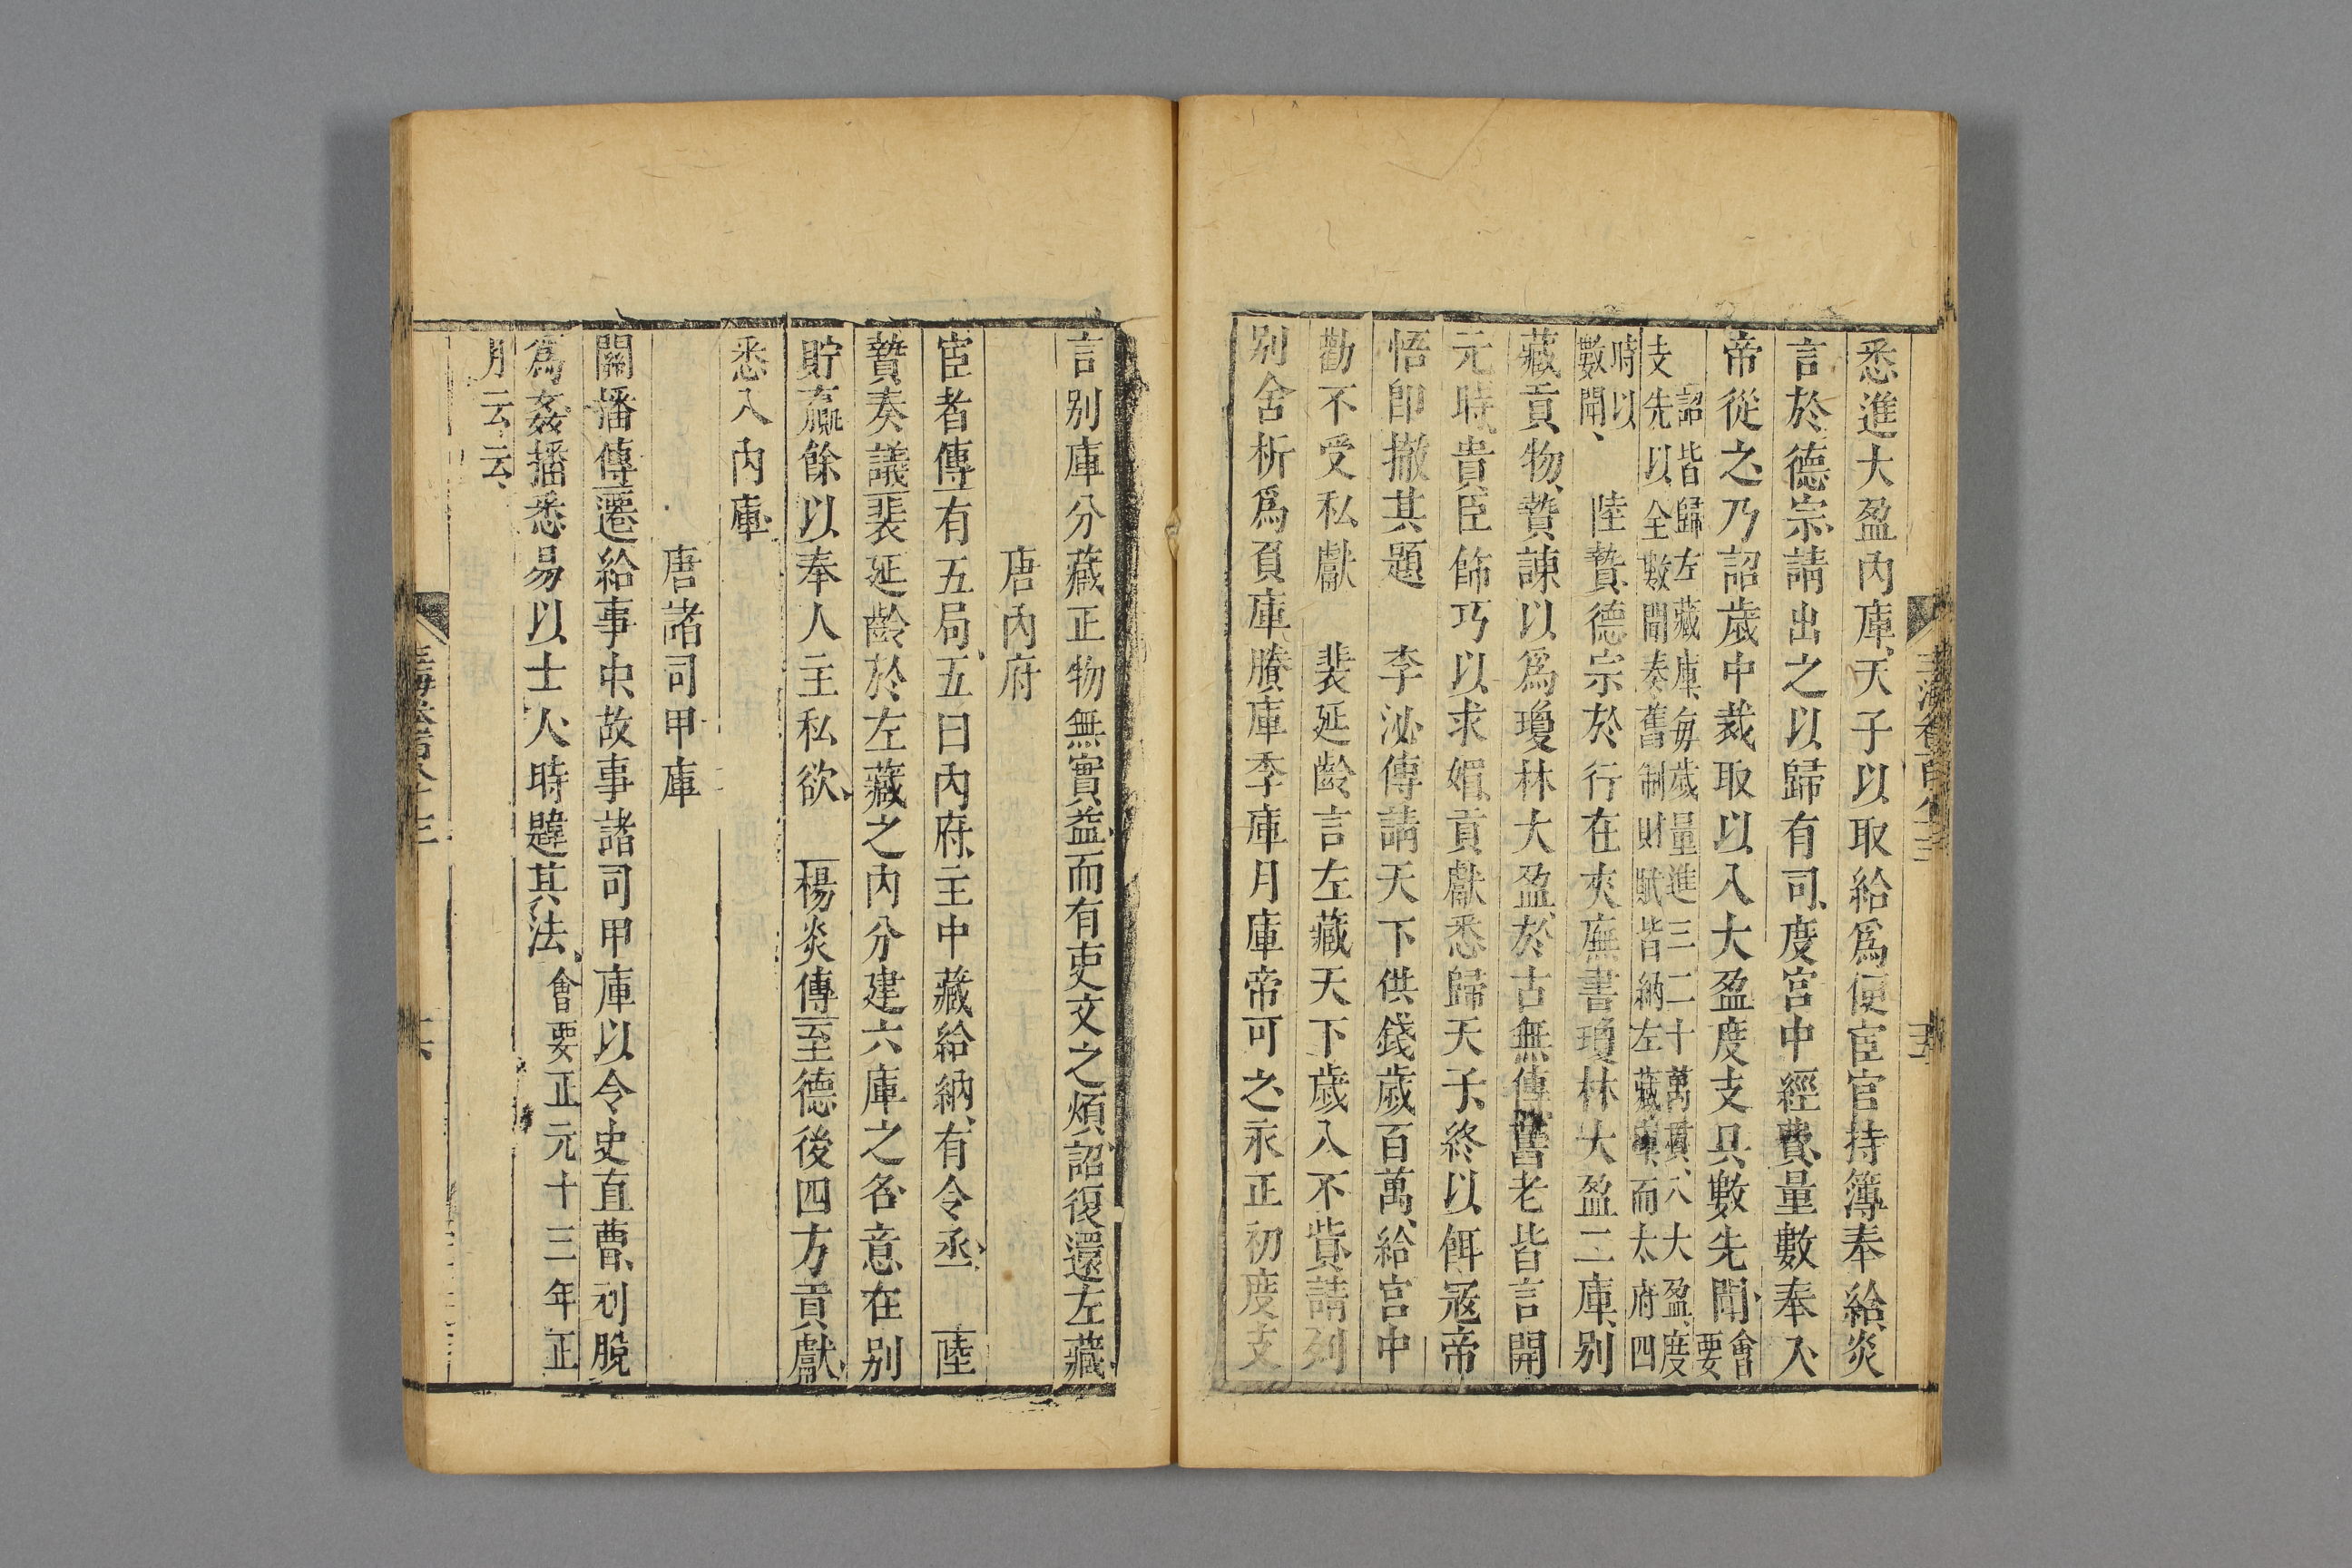 悉進大盈內庫、天子以取給爲便宦官持簿奉給、炎
言於德宗、請出之以歸有司、度宮中經費、量數奉入、
帝從之、乃詔歲中裁取以入大盈度支具數先聞、會要
詔皆歸左藏庫、每歲量進三二十萬貫、入大盈、度
支先以全數聞奏舊制財賦皆納左藏庫而太府四
時以
數聞、
陸贄德宗於行在夾廡書瓊林大盈二庫、別
藏貢物、贄諫以爲瓊林大盈、於古無傳舊老皆言開
元時、貴臣飾巧以求媚、貢獻悉歸天子、終以餌寇帝
悟卽撤其題 李泌傳請天下供錢歲百萬、給宮中
勸不受私獻 裴延齡言左藏天下歲入不貲、請列
別舍析爲負庫賸庫季庫月庫帝可之永正初度支
玉海卷百八十三
言別庫分藏正物無實益、而有吏文之煩、詔復還左藏、
唐內府
宦者傳有五局、五曰內府、主中藏給納、有令丞、 陸
贄奏議裴延齡於左藏之內分建六庫之名、意在別
貯贏餘以奉人主私欲、 楊炎傳至德後四方貢獻、
悉入內庫、
唐諸司甲庫
關播傳遷給事中、故事諸司甲庫以令史直曹、刓脫
爲姦播悉易以士人、時韙其法、會要正元十三年正
月云云、
玉海卷百八十三